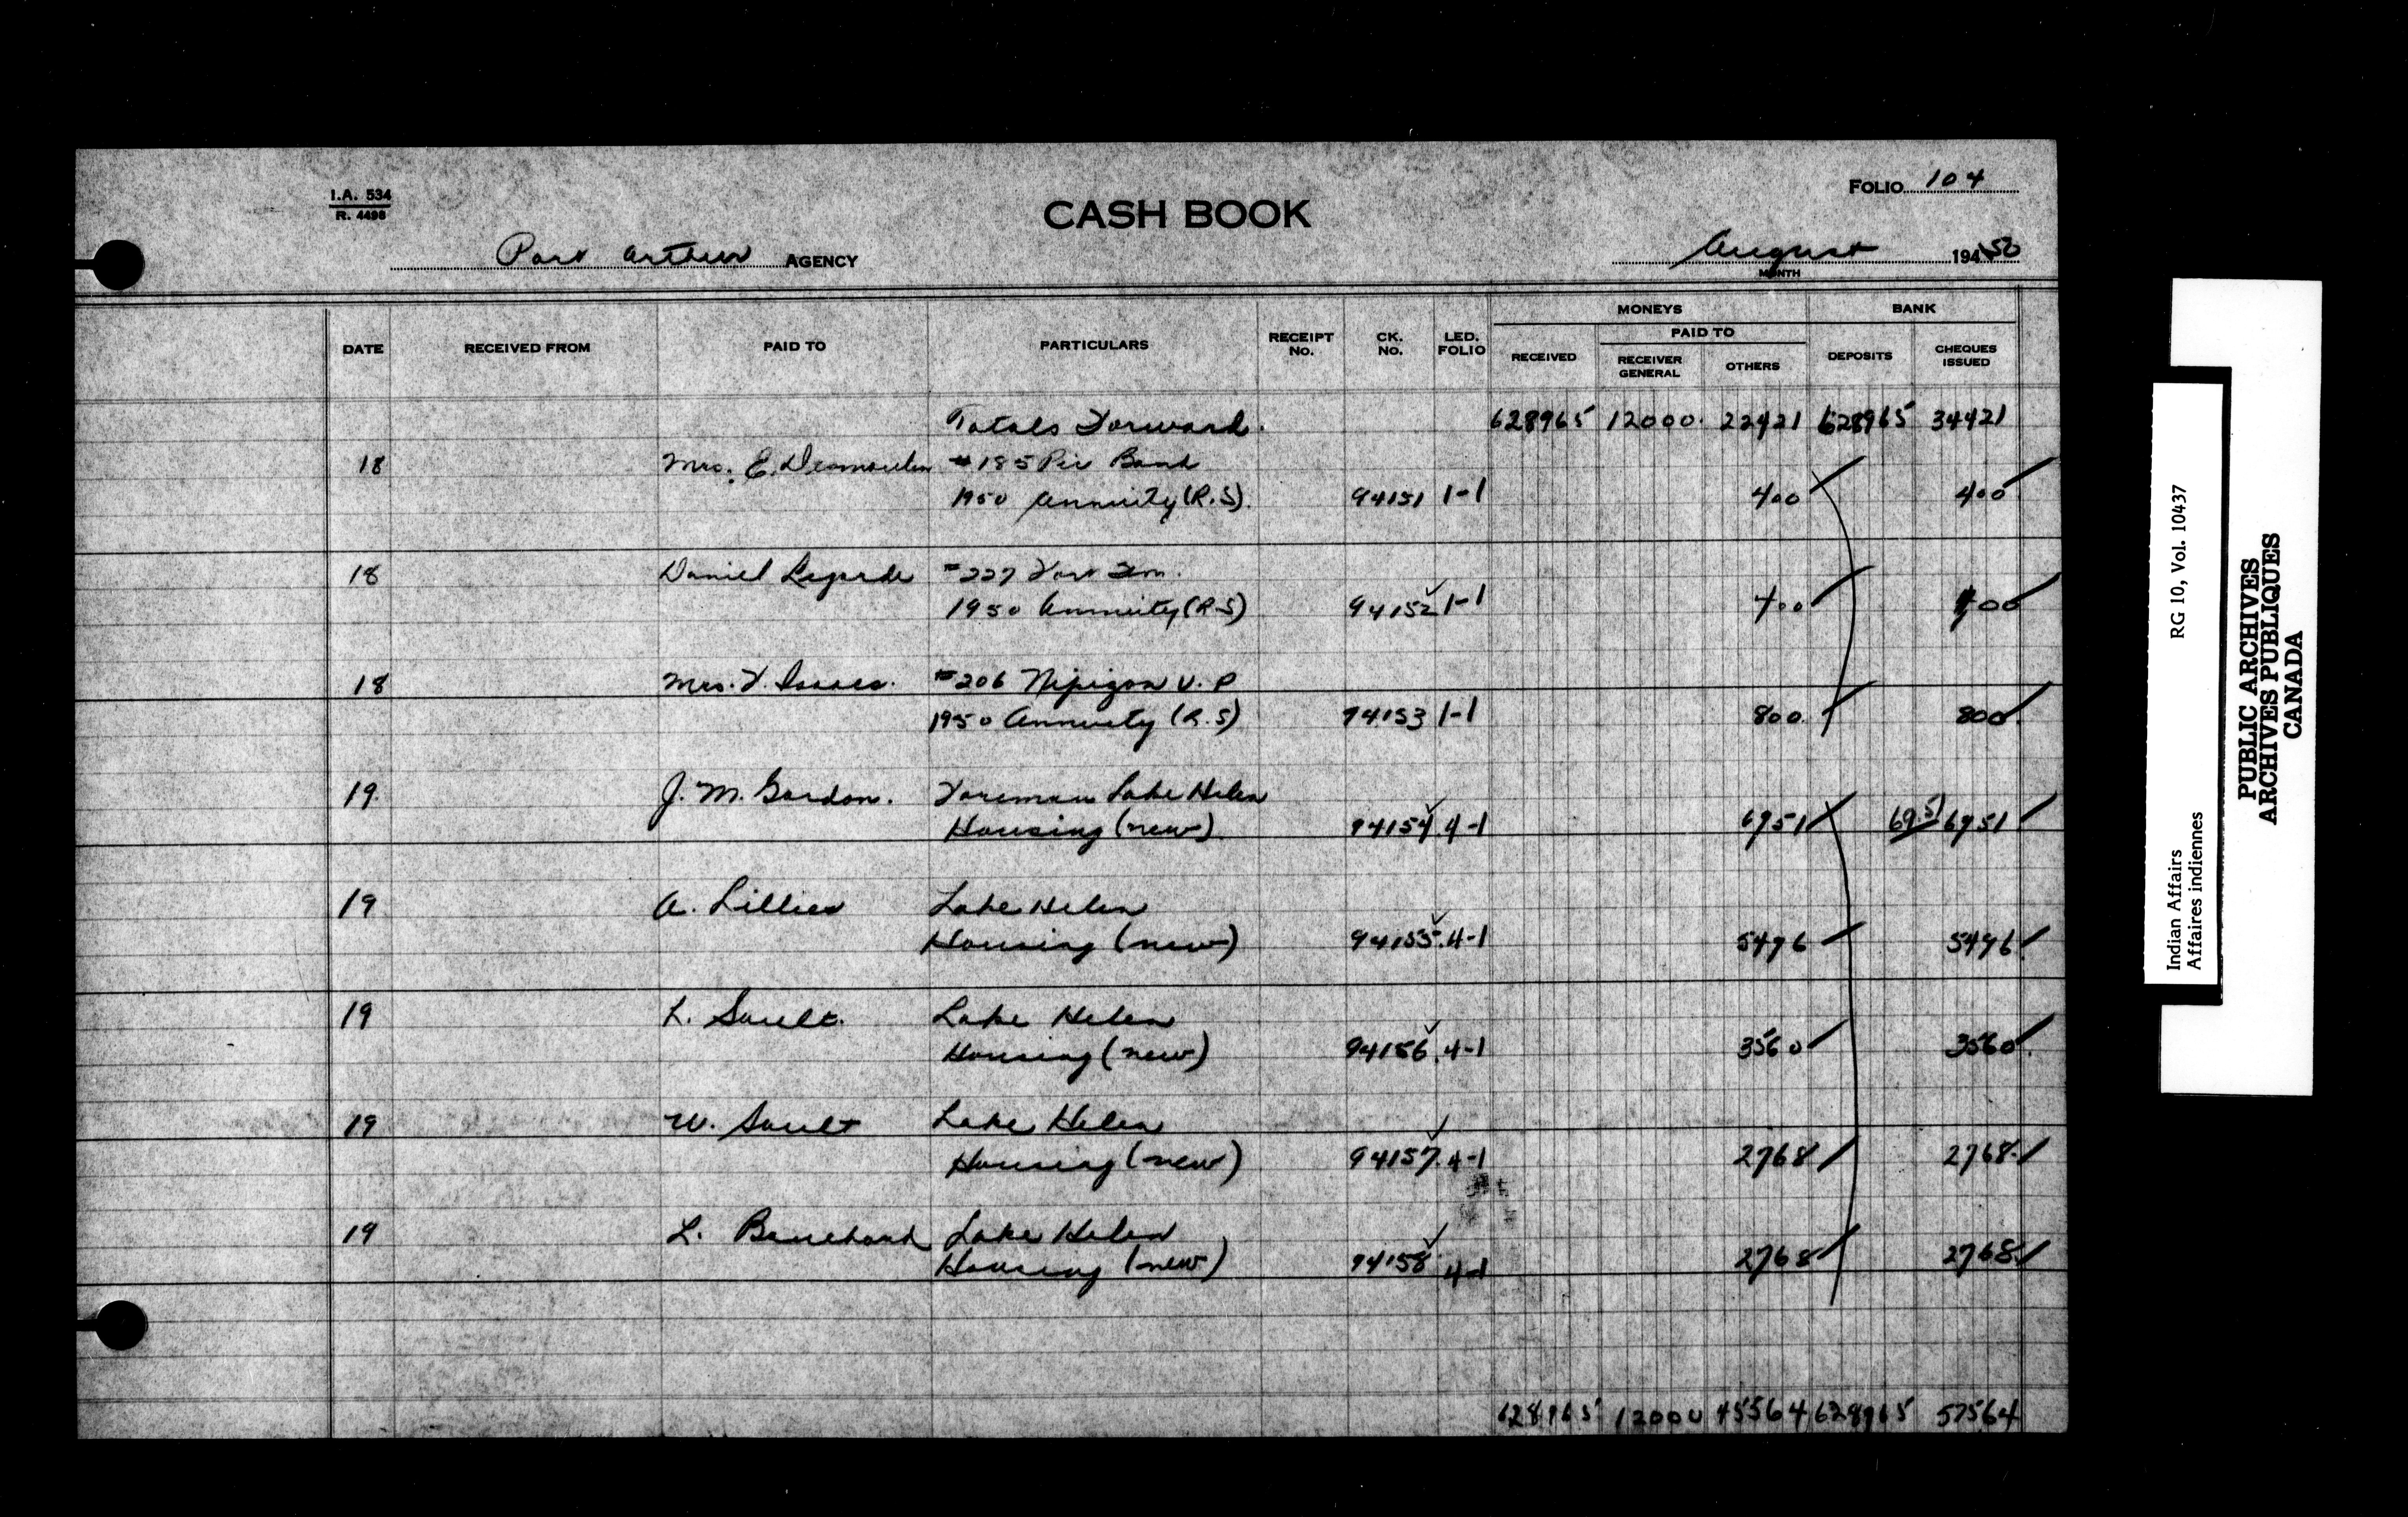 I.A. 534
R. 4498
CASH BOOK
FOLIO 104
Port Arthur AGENCY
August 194 50
MONTH
DATE RECEIVED FROM PAID TO PARTICULARS RECEIPT No. CK. No. LED. FOLIO MONEYS BANK
RECEIVED PAID TO DEPOSITS CHEQUES ISSUED
RECEIVER GENERAL OTHERS
Totals Forward. 628965 12000. 22421 628965 34421
18 Mrs. E. Desmoulin #185 Pic Band
1950 Annuity (R.S). 94151 1-1 400 400
18 Daniel Legarde #227 Fort Wm.
1950 Annuity (R-S) 94152 1-1 400 400
18 Mrs. F. Isaacs. #206 Nipigon
1950 Annuity (R.S) 94153 1-1 800. 800.
19. J. M. Gordon. Foreman Lake Helen
Housing (new). 94154 4-1 6951 69.51 6951
19 A. Lillies Lake Helen
Housing (new) 94155. 4-1 5496 5496
19 L. Sault. Lake Helen
Housing (new) 94156. 4-1 3560 3560
19 W. Sault Lake Helen
Housing (new) 94157. 4-1 2768 2768
19 L. Bouchard Lake Helen
Housing (new) 94158 4-1 2768 2768
628965 12000 45564 628965 57564
Indian Affairs RG 10, Vol. 10437
Affaires indiennes
PUBLIC ARCHIVES
ARCHIVES PUBLIQUES
CANADA